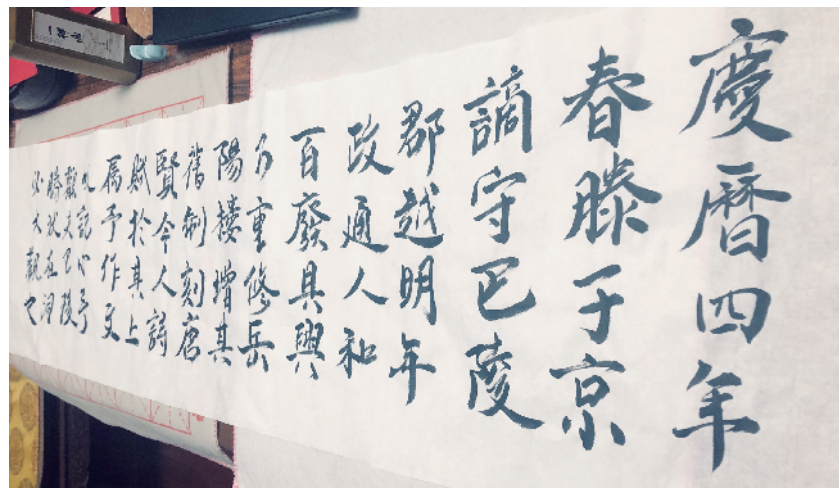 慶曆四年
春滕子京
謫守巴陵
郡越明年
政通人和
百廢具興
乃重修岳
陽樓增其
舊制刻唐
賢今人詩
賦於其上
属予作文
以記之予
觀夫巴陵
勝狀在洞
大觀也